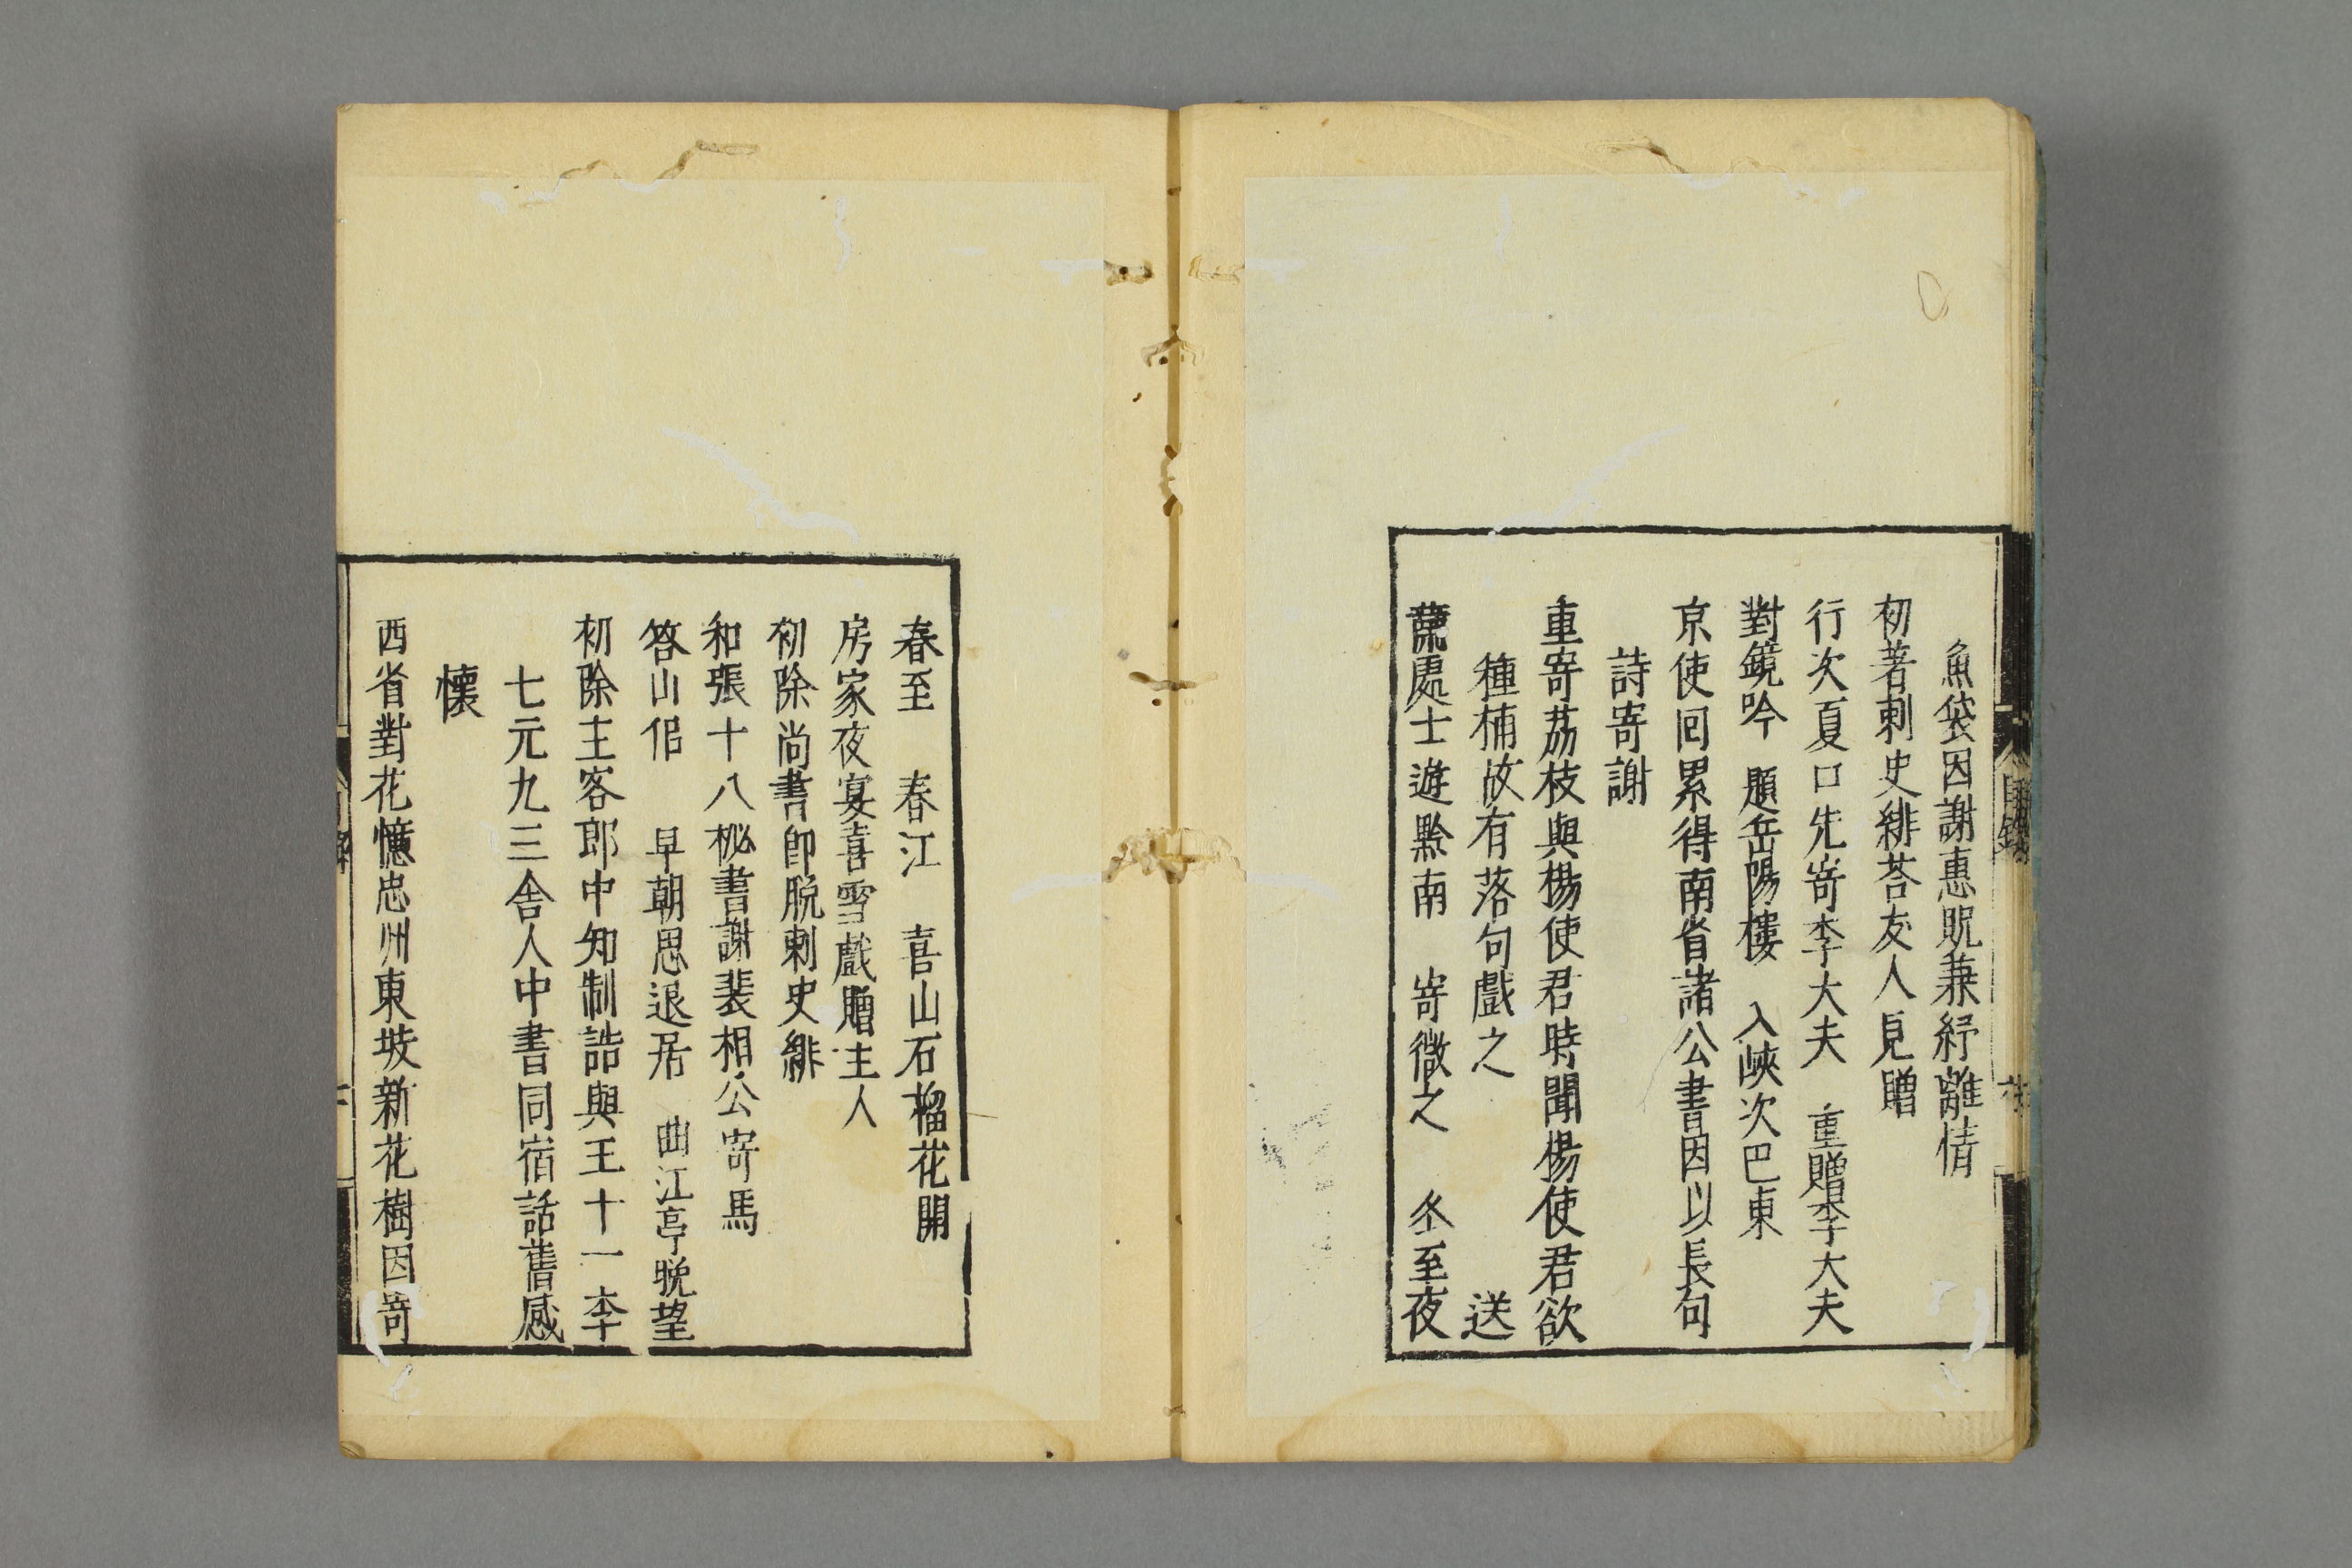 魚袋因謝惠貺兼紓離情
初著刺史緋荅友人見贈
行次夏口先寄李大夫 重贈李大夫
對鏡吟 題岳陽樓 入峽次巴東
京使回累得南省諸公書因以長句
詩寄謝
重寄荔枝與楊使君時聞楊使君欲
種楠故有落句戲之 送
蕭處士遊黔南 寄微之 冬至夜
春至 春江 喜山石榴花開
房家夜宴喜雪戲贈主人
初除尚書郎脫刺史緋
和張十八秘書謝裴相公寄馬
答山侶 早朝思退居 曲江亭晚望
初除主客郎中知制誥與王十一李
七元九三舍人中書同宿話舊感
懷
西省對花憶忠州東坡新花樹因寄